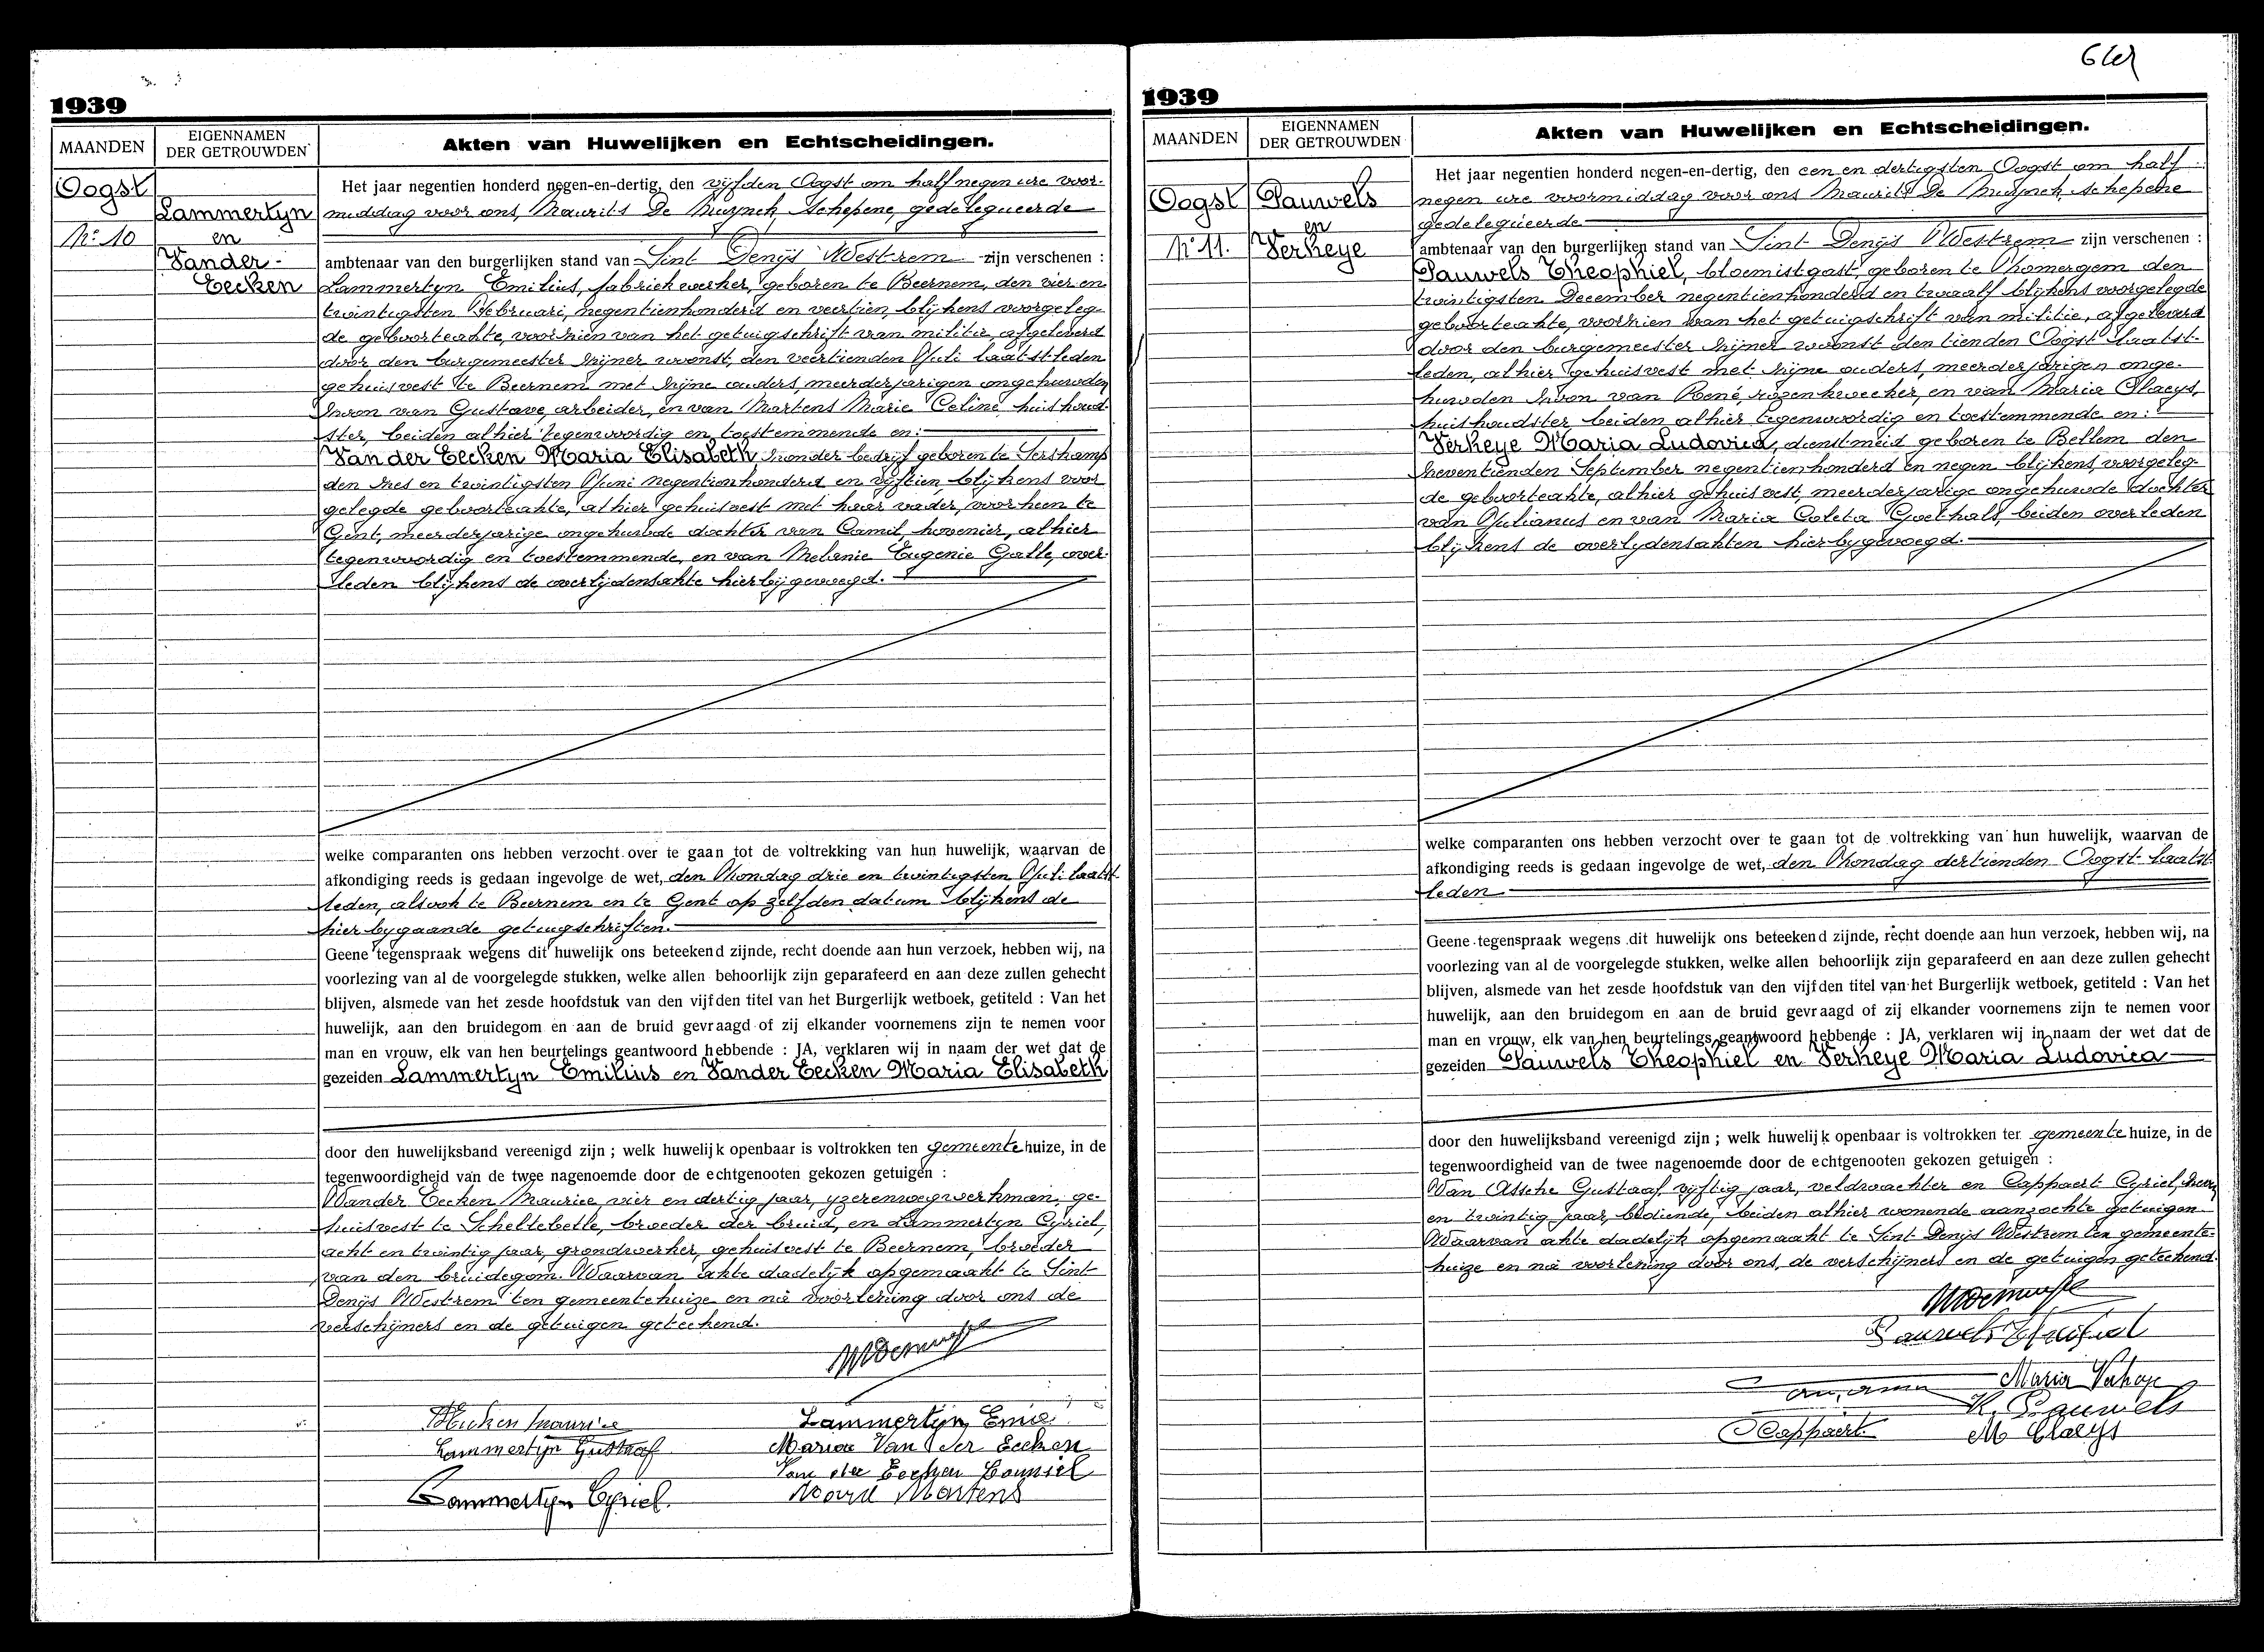 1939
MAANDEN
EIGENNAMEN
DER GETROUWDEN
Akten van Huwelijken en Echtscheidingen.
Oogst
No 10
Lammertyn
en
Vander-
Eecken
Het jaar negentien honderd negen-en-dertig, den vijfden Oogst om half negen ure voor-
middag voor ons, Maurits De Muynck, Schepene, gedelegueerde
ambtenaar van den burgerlijken stand van Sint Denijs Westrem zijn verschenen :
Lammertyn Emilius, fabriekwerker, geboren te Beernem, den vier en
twintigsten Februari, negentienhonderd en veertien, blijkens voorgeleg-
de geboorteakte, voorzien van het getuigschrift van militie, afgeleverd
door den burgemeester zijner woonst, den veertienden Juli laatstleden
gehuisvest te Beernem met zijne ouders, meerderjarigen ongehuwden
zoon van Gustave, arbeider, en van Martens Marie Celine, huishoud-
ster, beiden alhier tegenwoordig en toestemmende en:
Van der Eecken Maria Elisabeth zonder bedrijf geboren te Serskamp
den zes en twintigsten Juni negentienhonderd en vijftien, blijkens voor
gelegde geboorteakte, alhier gehuisvest met haar vader, voorheen te
Gent, meerderjarige ongehuwde dochter van Camil, hovenier, alhier
tegenwoordig en toestemmende, en van Melanie Eugenie Galle, over-
leden blijkens de overlijdensakte hierbijgevoegd.
welke comparanten ons hebben verzocht over te gaan tot de voltrekking van hun huwelijk, waarvan de
afkondiging reeds is gedaan ingevolge de wet, den Mondag drie en twintigsten Juli laatst-
leden, alsook te Beernem en te Gent op zelfden datum blijkens de
hierbygaande getuigschriften.
Geene tegenspraak wegens dit huwelijk ons beteekend zijnde, recht doende aan hun verzoek, hebben wij, na
voorlezing van al de voorgelegde stukken, welke allen behoorlijk zijn geparafeerd en aan deze zullen gehecht
blijven, alsmede van het zesde hoofdstuk van den vijfden titel van het Burgerlijk wetboek, getiteld : Van het
huwelijk, aan den bruidegom en aan de bruid gevraagd of zij elkander voornemens zijn te nemen voor
man en vrouw, elk van hen beurtelings geantwoord hebbende : JA, verklaren wij in naam der wet dat de
gezeiden Lammertyn Emilius en Vander Eecken Maria Elisabeth
door den huwelijksband vereenigd zijn ; welk huwelijk openbaar is voltrokken ten gemeentehuize, in de
tegenwoordigheid van de twee nagenoemde door de echtgenooten gekozen getuigen :
Vander Eecken Maurice, vier en dertig jaar, yzerenwegwerkman, ge-
huisvest te Scheltebelle, broeder der bruid, en Lammertyn Cyriel,
acht en twintig jaar, grondwerker, gehuisvest te Beernem, broeder
van den bruidegom. Waarvan akte dadelijk opgemaakt te Sint
Denijs Westrem ten gemeentehuize en na voorlezing door ons de
verschijners en de getuigen geteekend.
Lammertyn Gustaaf
Lammertyn Cyriel.
Maria Van der Eecken
Martens
1939
MAANDEN
EIGENNAMEN
DER GETROUWDEN
Akten van Huwelijken en Echtscheidingen.
Oogst
No 11.
Pauwels
en
Verheye
Het jaar negentien honderd negen-en-dertig, den een en dertigsten Oogst om half
negen ure voormiddag voor ons Maurits De Muynck, schepene
gedelegueerde
ambtenaar van den burgerlijken stand van Sint Denijs Westrem zijn verschenen :
Pauwels Theophiel, bloemistgast, geboren te Somergem den
twintigsten December negentienhonderd en twaalf blijkens voorgelegde
geboorteakte, voorzien van het getuigschrift van militie, afgeleverd
door den burgemeester zijner woonst den tienden Oogst laatst-
leden, alhier gehuisvest met zijne ouders, meerderjarigen onge-
huwden zoon van René, rozenkweeker, en van Maria Claeys,
huishoudster beiden alhier tegenwoordig en toestemmende en:
Verheye Maria Ludovica, dienstmeid geboren te Bellem den
zeventienden September negentienhonderd en negen blijkens voorgeleg-
de geboorteakte, alhier gehuisvest, meerderjarige ongehuwde dochter
van Julianus en van Maria Coleta Goethals, beiden overleden
blijkens de overlydensakten hierbygevoegd.
welke comparanten ons hebben verzocht over te gaan tot de voltrekking van hun huwelijk, waarvan de
afkondiging reeds is gedaan ingevolge de wet, den Mondag dertienden Oogst laatst-
leden
Geene tegenspraak wegens dit huwelijk ons beteekend zijnde, recht doende aan hun verzoek, hebben wij, na
voorlezing van al de voorgelegde stukken, welke allen behoorlijk zijn geparafeerd en aan deze zullen gehecht
blijven, alsmede van het zesde hoofdstuk van den vijfden titel van het Burgerlijk wetboek, getiteld : Van het
huwelijk, aan den bruidegom en aan de bruid gevraagd of zij elkander voornemens zijn te nemen voor
man en vrouw, elk van hen beurtelings geantwoord hebbende : JA, verklaren wij in naam der wet dat de
gezeiden Pauwels Theophiel en Verheye Maria Ludovica
door den huwelijksband vereenigd zijn ; welk huwelijk openbaar is voltrokken ter gemeente huize, in de
tegenwoordigheid van de twee nagenoemde door de echtgenooten gekozen getuigen :
Van Assche Gustaaf vijftig jaar, veldwachter en Cappaert Cyriel,
en twintig jaar, bediende, beiden alhier wonende aanzochte getuigen
Waarvan akte dadelijk opgemaakt te Sint Denijs Westrem ten gemeente-
huize en na voorlezing door ons, de verschijners en de getuigen geteekend.
Maria Verheye
R. Pauwels
Cappaert
M Claeys